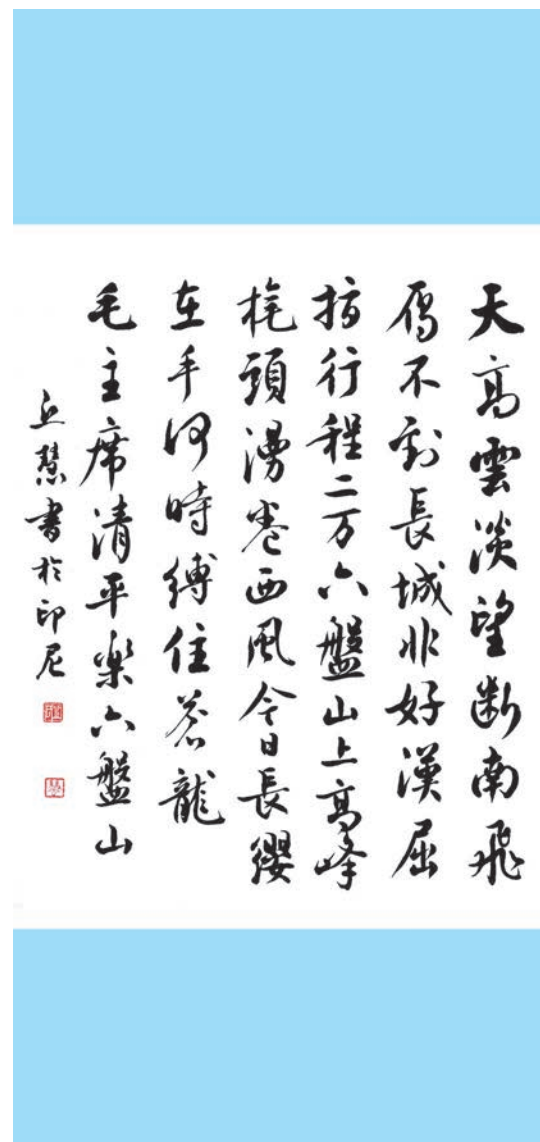 天高雲淡望断南飛
鴈不到長城非好漢屈
指行程二万六盤山上高峰
旄頭漫卷西風今日長纓
在手何時縛住蒼龍
毛主席清平楽六盤山
丘慧書於印尼